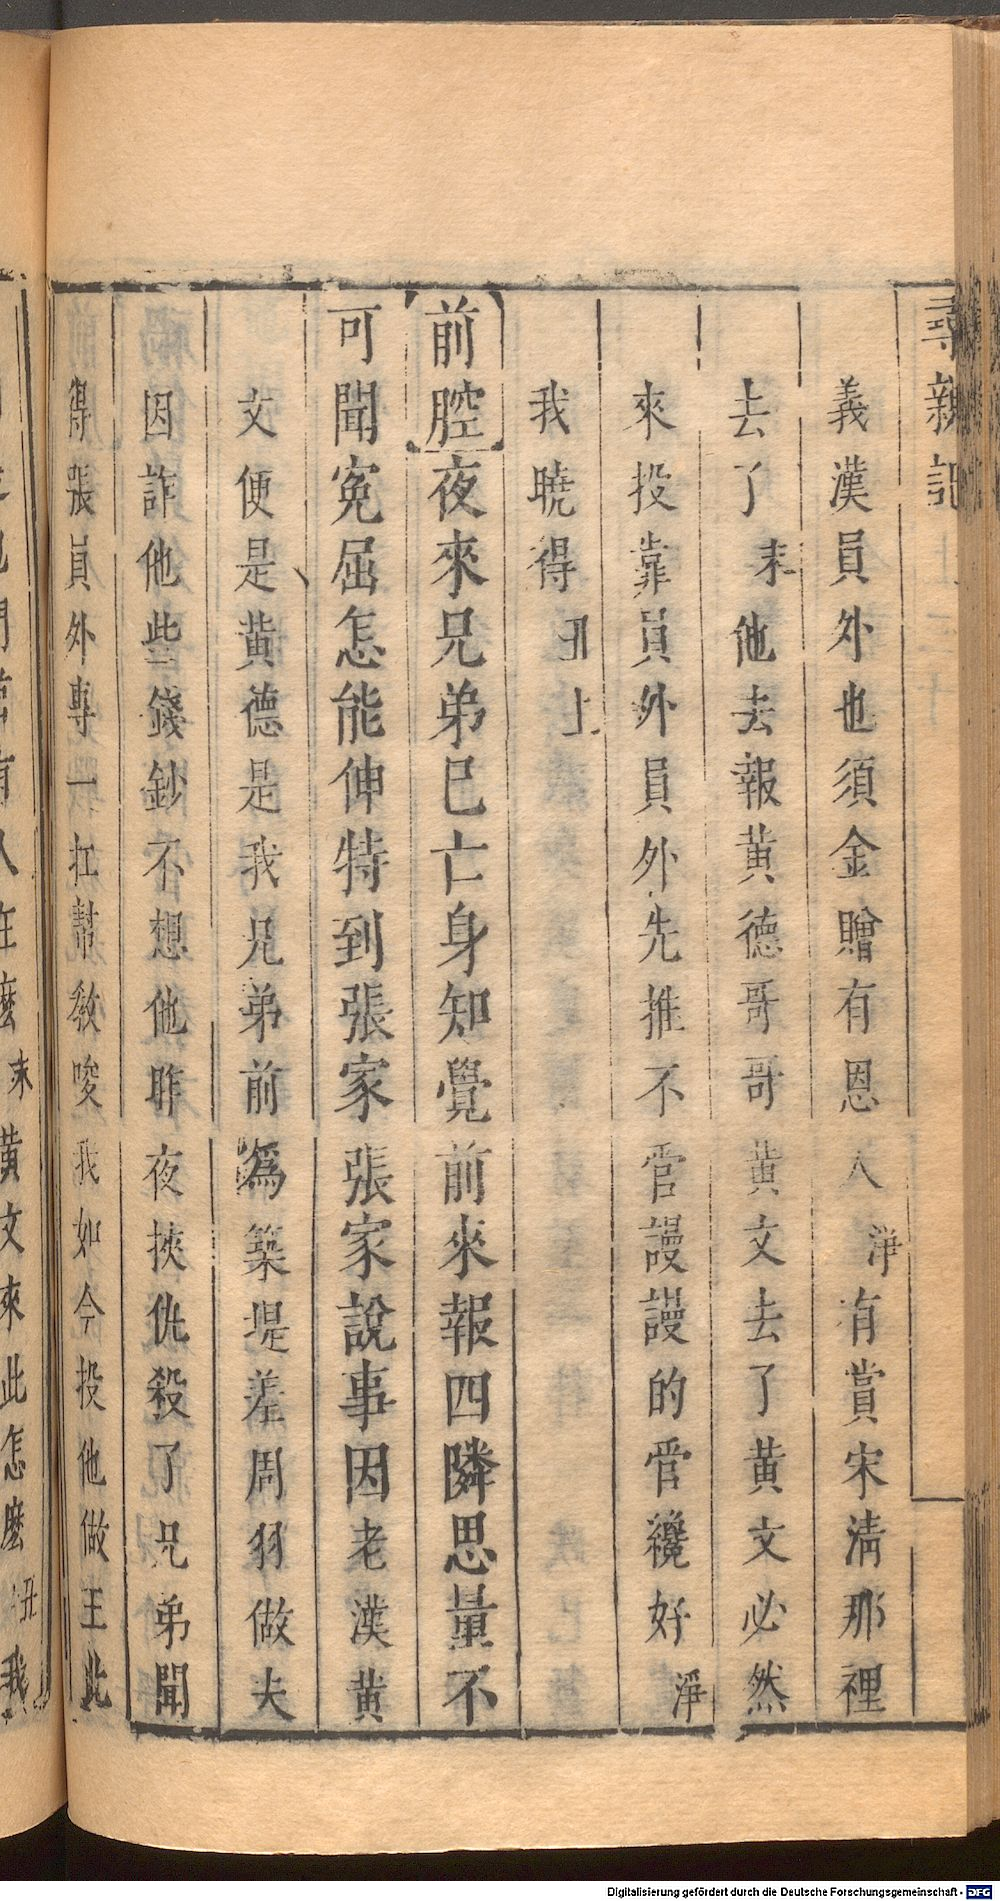 尋親記
義漢員外也須金贈有恩人淨有賞宋清那裡
去了末他去報黃德哥哥黃文去了黃文必然
來投靠員外員外先推不管謾謾的管纔好淨
我曉得丑上
前腔夜來兄弟已亡身知覺前來報四隣思量不
可聞寃屈怎能伸特到張家張家說事因老漢黃
文便是黃德是我兄弟前爲築堤差周羽做夫
因詐他些錢鈔不想他昨夜挾仇殺了兄弟聞
得張員外專一扛幫教唆我如今投他做主此
人在麼末黃文來此怎麼丑我
Digitalisierung gefördert durch die Deutsche Forschungsgemeinschaft - DFG